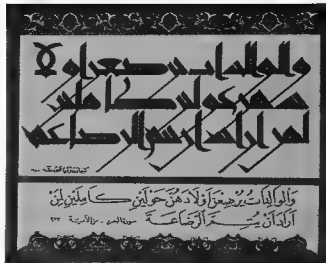 والوالدات يرضعن أو لا
دهن حولين كاملين
لمن أراد أن يتم الرضاعة
وَالْوَالِدَاتُ يُرْضِعْنَ أَوْلَادَهُنَّ حَوْلَيْنِ كَامِلَيْنِ لِمَنْ
أَرَادَ أَنْ يُتِمَّ الرَّضَاعَةَ سورة البقرة - من الآية ٢٣٣